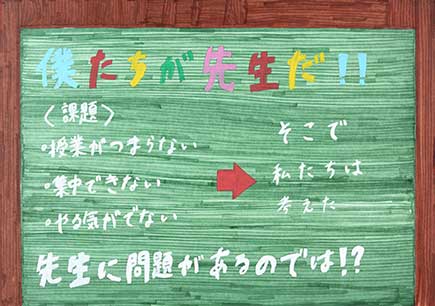 僕たちが先生だ!!
〈課題〉
・授業がつまらない
・集中できない
・やる気がでない
そこで
私たちは
考えた
先生に問題があるのでは!?